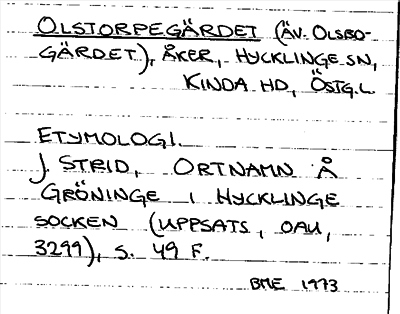 OLSTORPEGÄRDET (ÄV. OLSBO-
GÄRDET), ÅKER, HYCKLINGE SN,
KINDA HD, ÖSTG.L.
ETYMOLOGI.
J. STRID, ORTNAMN Å
GRÖNINGE I HYCKLINGE
SOCKEN (UPPSATS, OAU,
3299), S. 49 F.
BME 1973